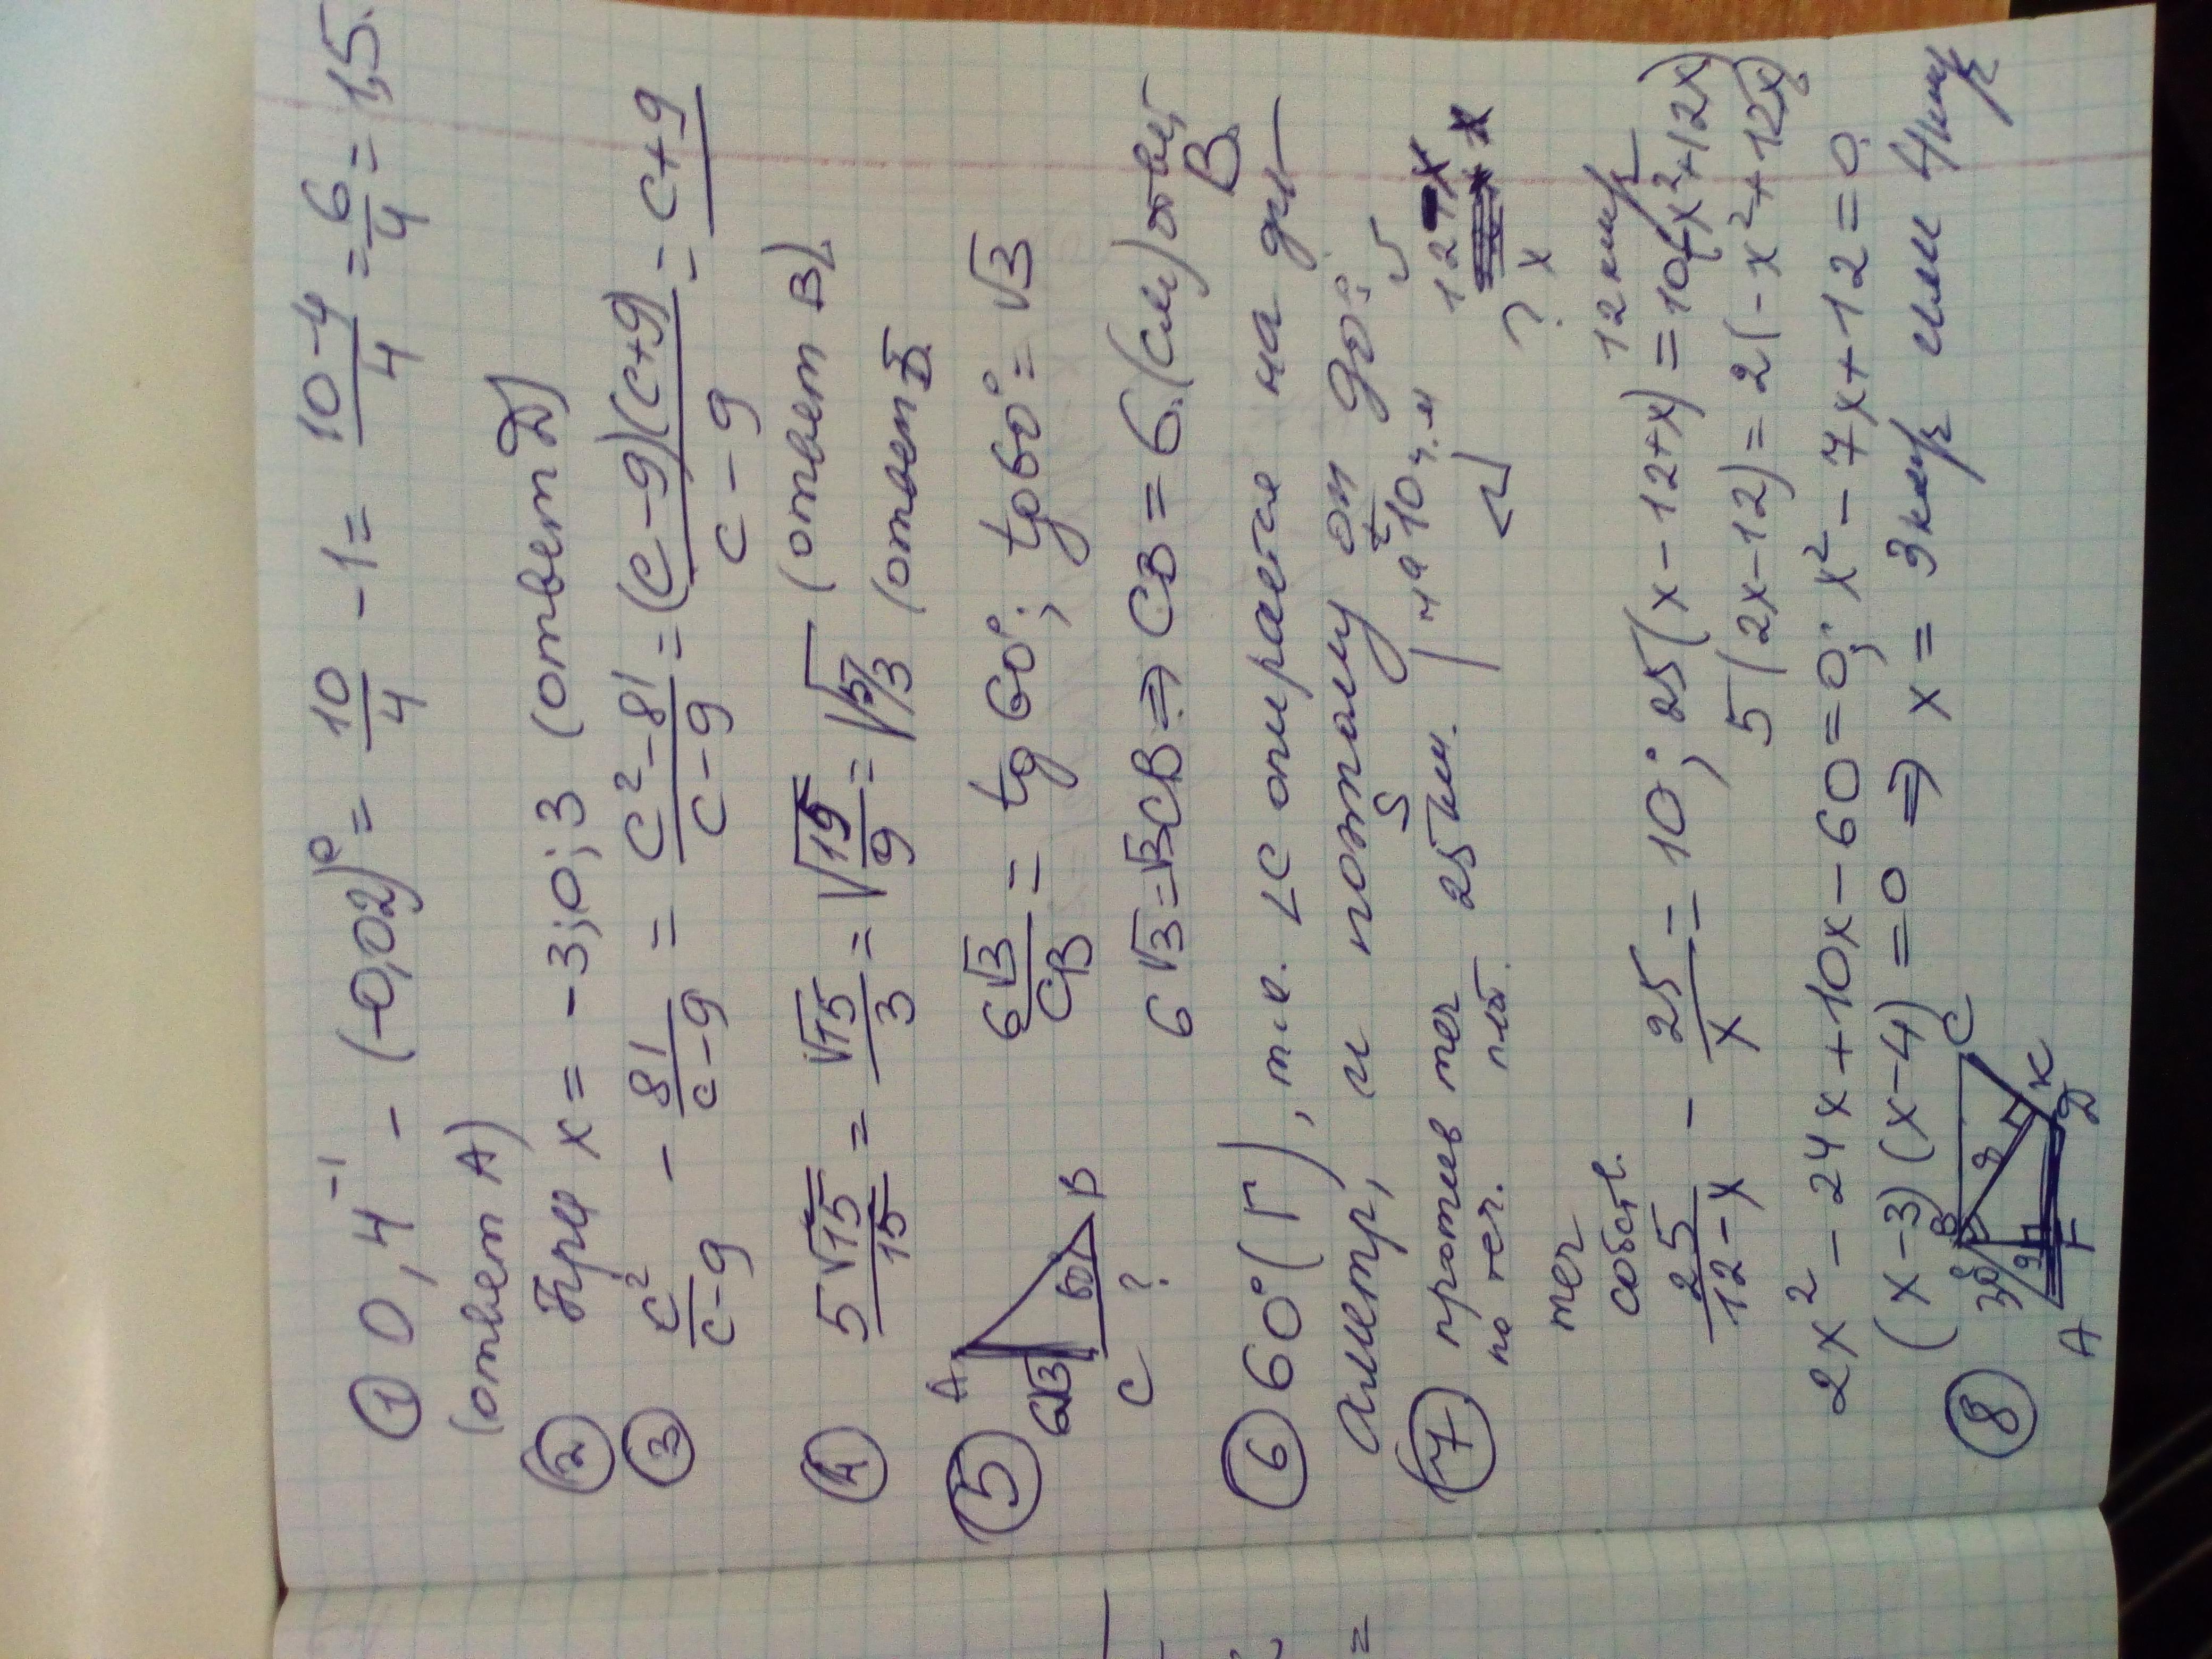 ① 0,4⁻¹ - (-0,02)⁰ = 10/4 - 1 = (10-4)/4 = 6/4 = 1,5.
(ответ А)
② При x = -3; 0; 3 (ответ Д)
③ c²/(c-9) - 81/(c-9) = (c²-81)/(c-9) = (c-9)(c+9)/(c-9) = c+9
(ответ В)
④ 5√15/15 = √15/3 = √15/9 = √5/3 (ответ Б
⑤ А 6√3 С ? В 60° 6√3/CB = tg 60°; tg60° = √3
6√3 = √3CB ⇒ CB = 6.(см) ответ В.
⑥ 60° (Г), т.к. ∠С опирается на ди-
аметр, и потому он 90°.
S t v
⑦ против теч 25 км. на 10 ч. м 12-x
по теч. плот. x
? x
теч
собств. 12 км/ч
25/(12-x) - 25/x = 10; 25(x-12+x) = 10(-x²+12x)
5(2x-12) = 2(-x²+12x)
2x² - 24x + 10x - 60 = 0; x² - 7x + 12 = 0.
(x-3)(x-4) = 0 ⇒ x = 3км/ч или 4км/ч
⑧ А В С Д К F 30°